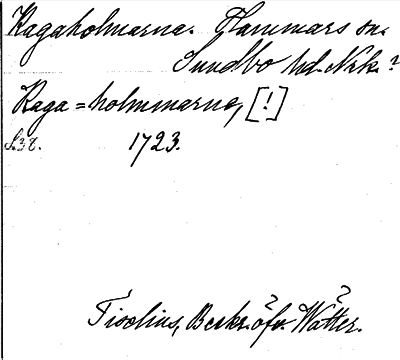 Kagaholmarna. Hammars sn.
Sundbo hd. Nrk.?
Kaga=holmmarne, [!]
S. 38. 1723.
Tiselius, Beskr. öfv. Wätter.